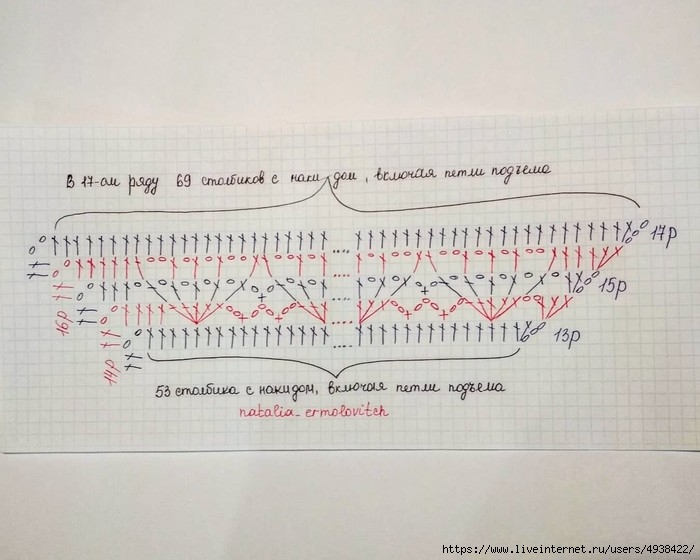 В 17-ом ряду 69 столбиков с накидом, включая петли подъема
17р
16р
15р
14р
13р
53 столбика с накидом, включая петли подъема
natalia_ermolovitch
https://www.liveinternet.ru/users/4938422/